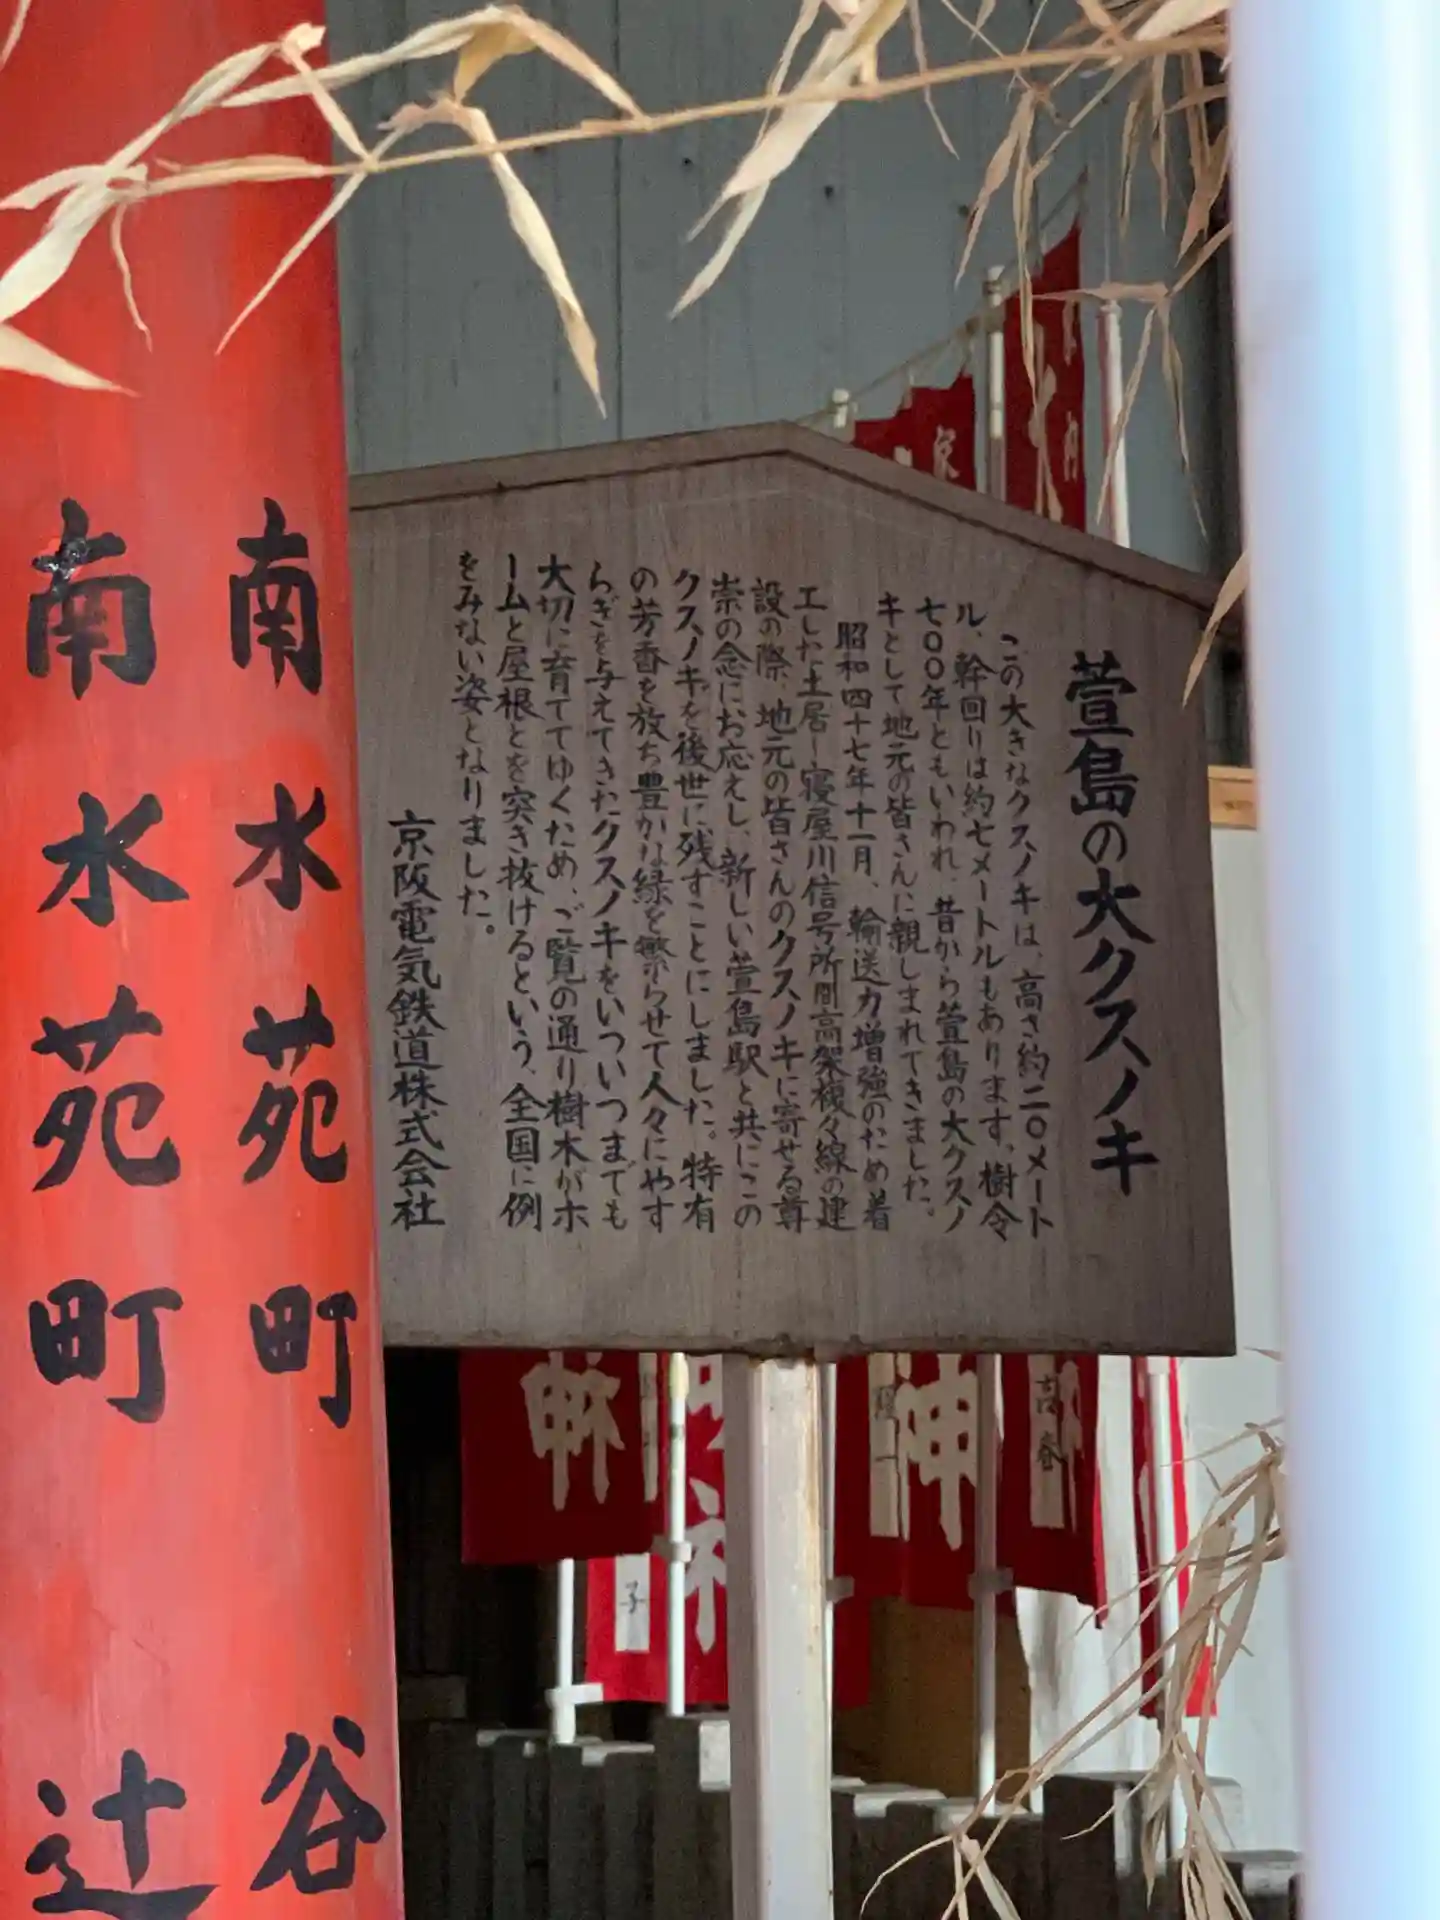 萱島の大クスノキ
この大きなクスノキは、高さ約二〇メート
ル、幹回りは約七メートルもあります。樹令
七〇〇年ともいわれ、昔から萱島の大クスノ
キとして地元の皆さんに親しまれてきました。
昭和四十七年十一月、輸送力増強のため着
工した土居ー寝屋川信号所間高架複々線の建
設の際、地元の皆さんのクスノキに寄せる尊
崇の念にお応えし、新しい萱島駅と共にこの
クスノキを後世に残すことにしました。特有
の芳香を放ち豊かな緑を繁らせて人々にやす
らぎを与えてきたクスノキをいついつまでも
大切に育ててゆくため、ご覧の通り樹木がホ
ームと屋根とを突き抜けるという、全国に例
をみない姿となりました。
京阪電気鉄道株式会社
南水苑町 谷
南水苑町 辻
神
高春
子